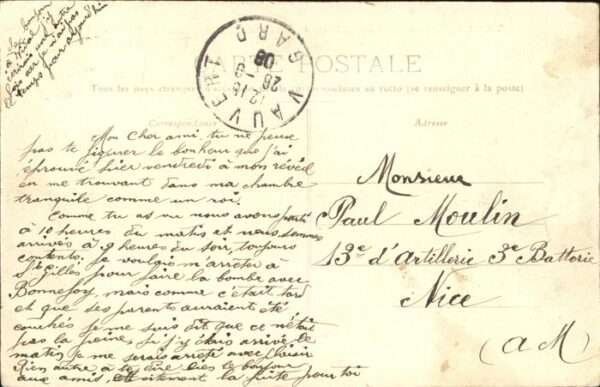 CARTE POSTALE
Tous les pays étrangers au recto (se renseigner à la poste)
Correspondance
Adresse
VAUVERT
GARD
12 15
28 - 9
08
Mon cher ami, tu ne peux
pas te figurer le bonheur que j'ai
éprouvé hier vendredi à mon réveil
en me trouvant dans ma chambre
tranquile comme un roi.
Comme tu as vu nous avons parti
à 10 heures du matin et nous sommes
arrivés à 9 heures du soir, toujours
contents. Je voulais m'arrêter à
St Gilles pour faire la bombe avec
Bonnefoy, mais comme c'était tard
et que ses parents auraient été
couchés je me suis dit que ce n'était
pas la peine, si j'y étais arrivé le
matin je me serais arrêté avec plaisir
Rien autre à te dire le bonjour
aux amis, et la fuite pour toi
le bonjour
à
une lettre
car je n'ai pas
temps aujourd'hui
Monsieur
Paul Moulin
13e d'artillerie 3e Batterie
Nice
(A M)